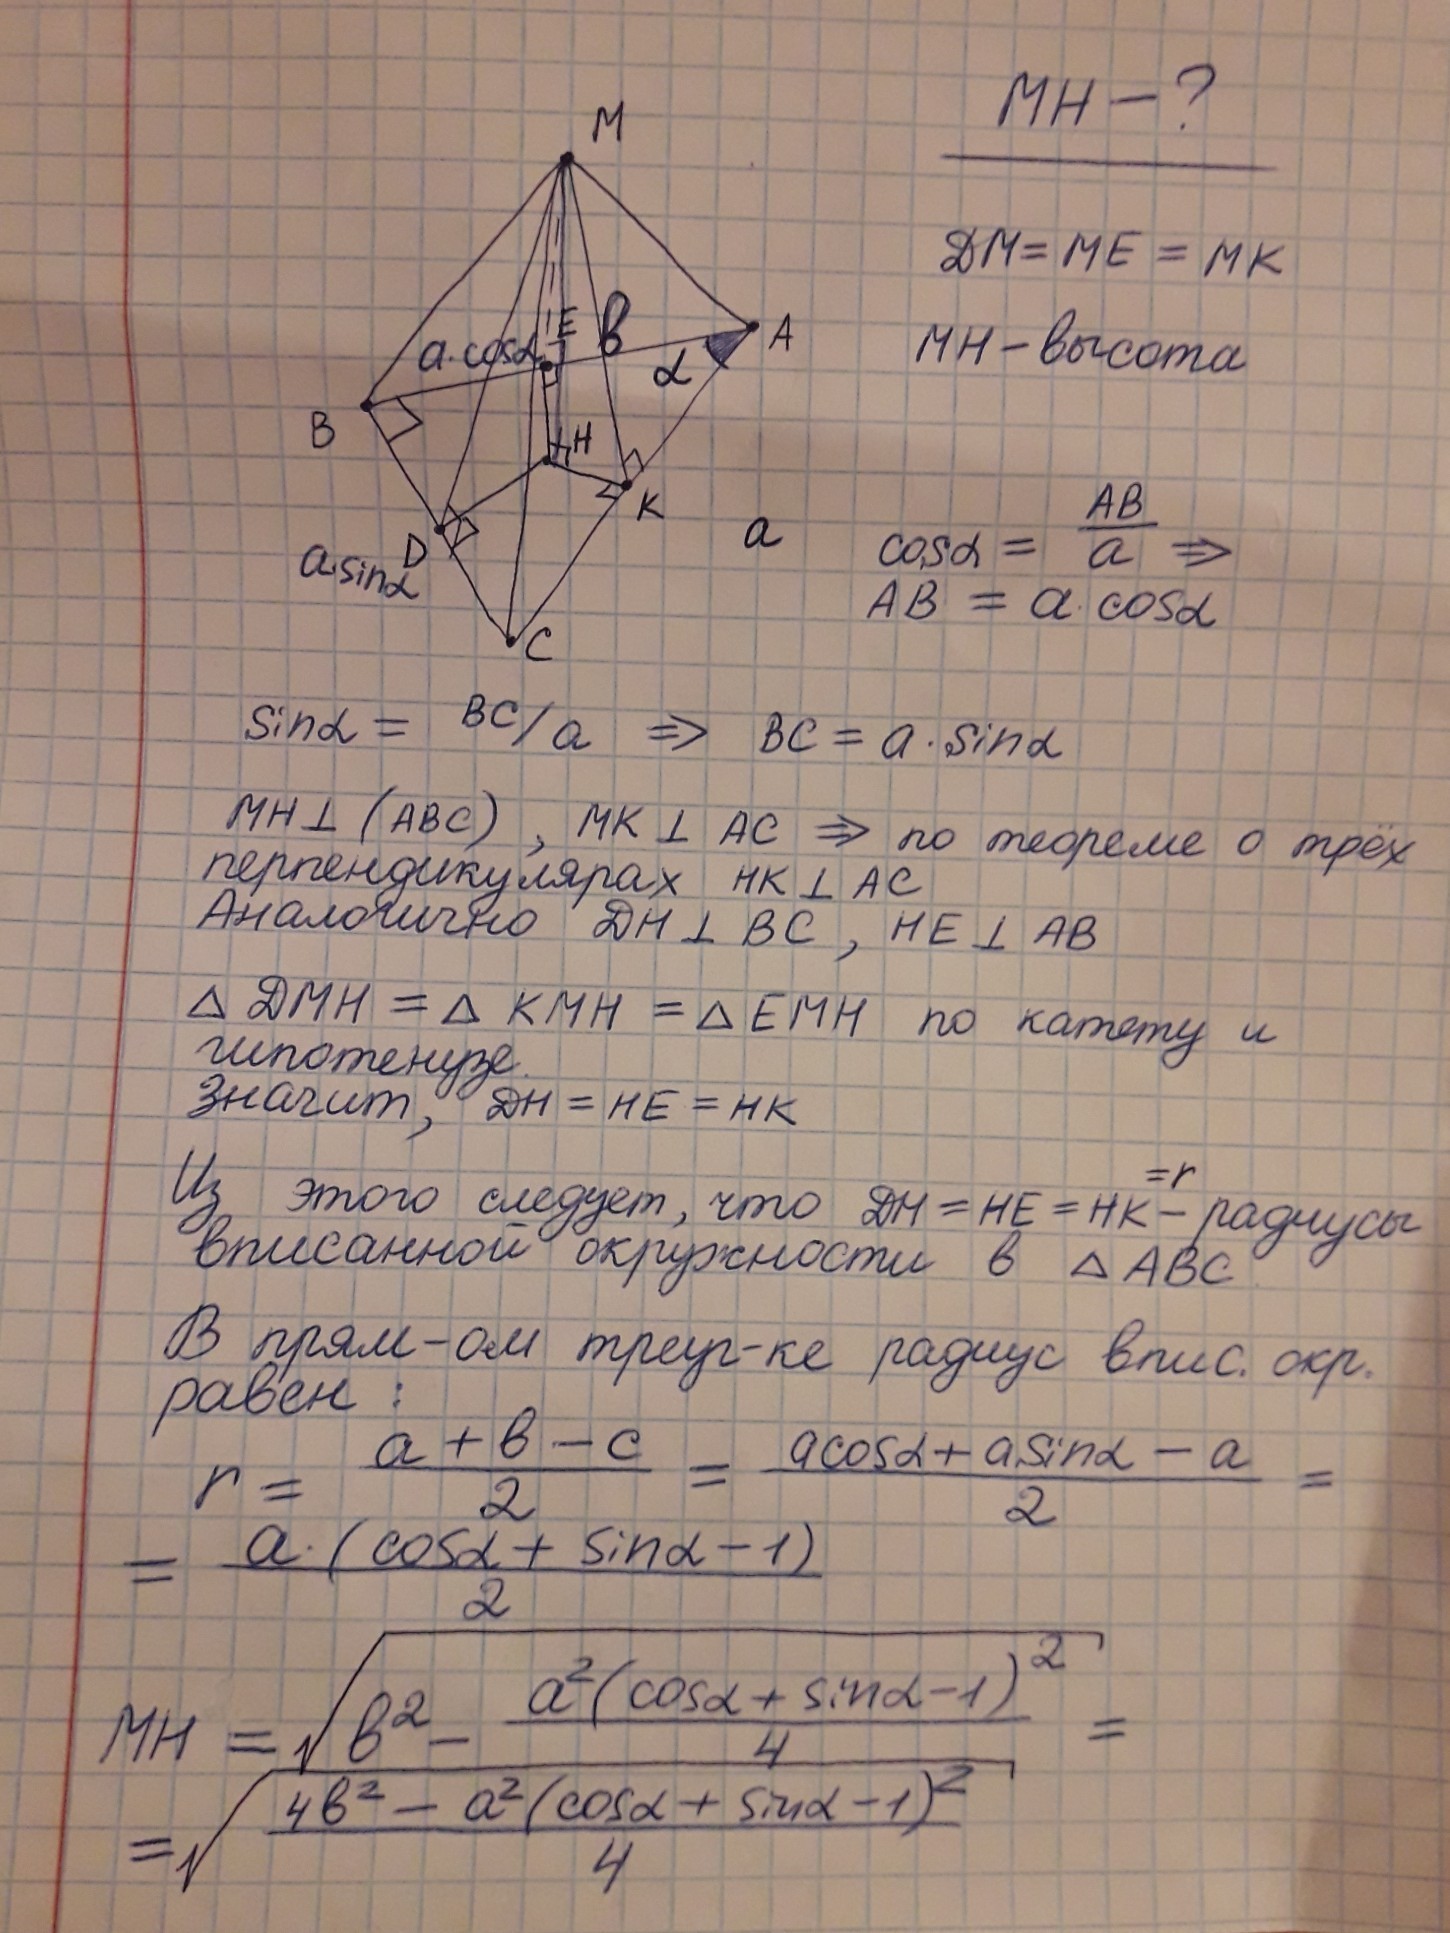 MH – ?
M
DM = ME = MK
MH – высота
E
в
A
a·cosα
α
B
H
K
a
D
a·sinα
C
cosα = AB/a ⇒
AB = a·cosα
sinα = BC/a ⇒ BC = a·sinα
MH ⊥ (ABC), MK ⊥ AC ⇒ по теореме о трёх
перпендикулярах HK ⊥ AC
Аналогично DH ⊥ BC, HE ⊥ AB
△ DMH = △ KMH = △ EMH по катету и
гипотенузе.
Значит, DH = HE = HK
Из этого следует, что DH = HE = HK = r – радиусы
вписанной окружности в △ ABC
В прям-ом треуг-ке радиус впис. окр.
равен :
r = (a + в – c)/2 = (a cosα + a sinα – a)/2 =
= a·(cosα + sinα – 1)/2
MH = √(в² – a²(cosα + sinα – 1)²/4) =
= √((4в² – a²(cosα + sinα – 1)²)/4)